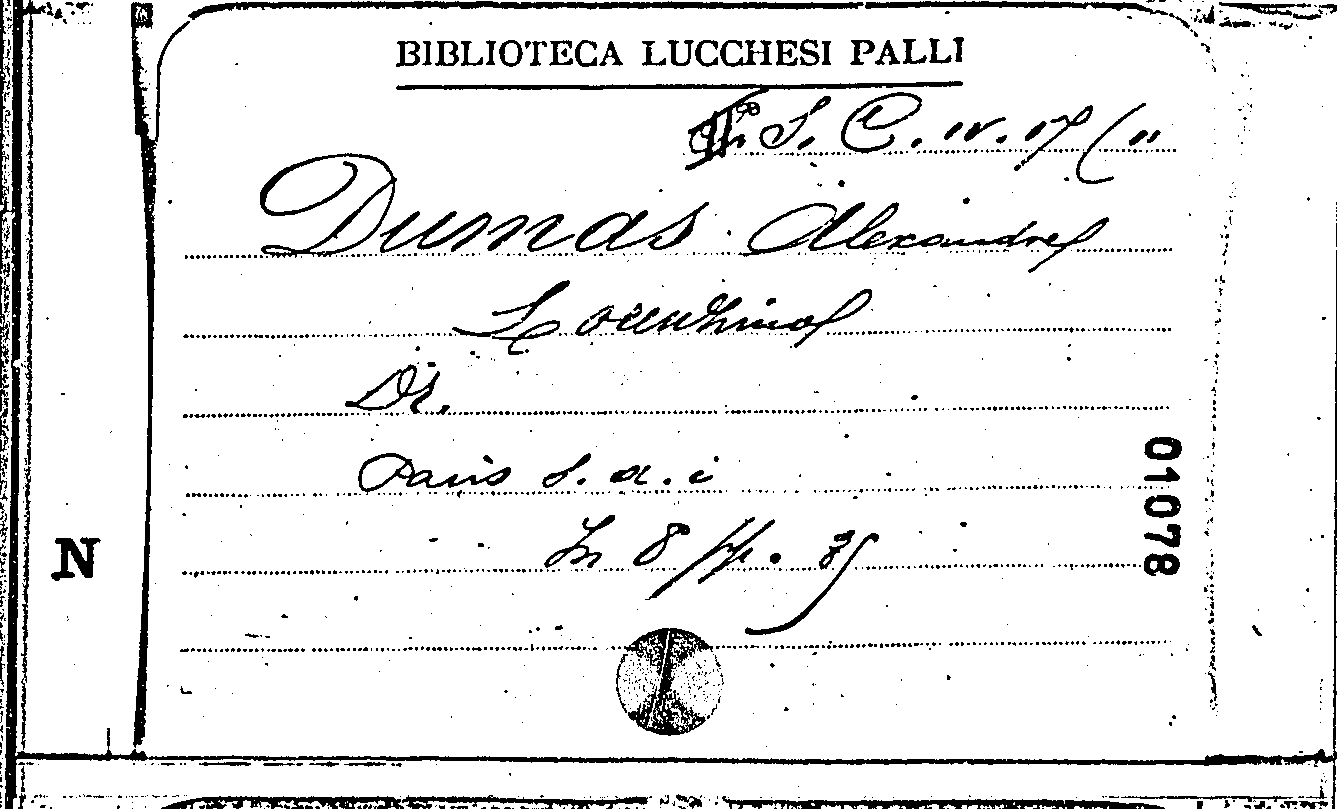 BIBLIOTECA LUCCHESI PALLI
S. C. IV. 17 (11
Dumas Alexandre
Dr.
Paris s. a. i
In 8 pp. 35
01078
N